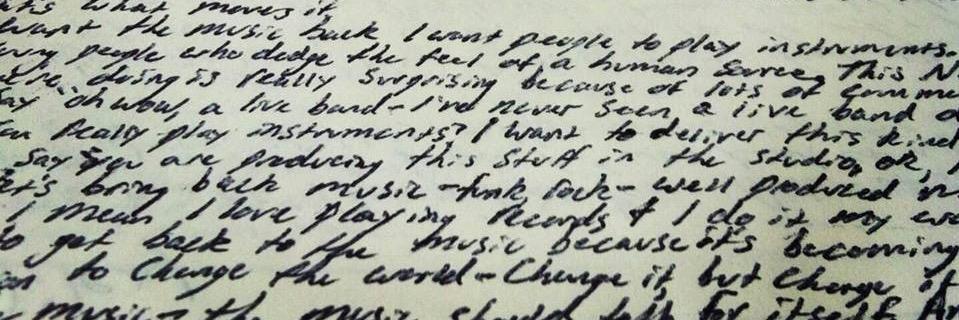 what moves it
want the music back. I want people to play instruments.
people who dodge the feel of a human This
doing is really surprising because of lots of
say "oh wow, a live band - I've never seen a live band
you really play instruments? I want to deliver this kind
say you are producing this stuff in the studio, ok,
let's bring back music - funk, rock - well produced
I mean, I love playing records & I do it my
to get back to the music because it's becoming
to change the world - change it, but change it
music - the music should talk for itself.